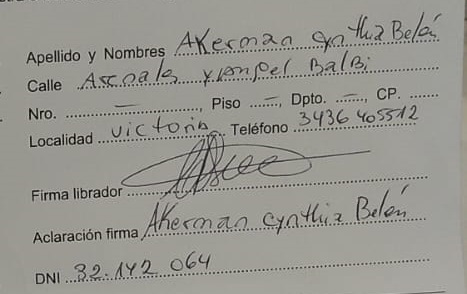 Apellido y Nombres Akerman Cynthia Belén
Calle Balbi
Nro. —, Piso —, Dpto. —, CP.
Localidad Victoria Teléfono 3436 405512
Firma librador
Aclaración firma Akerman Cynthia Belén
DNI 32.142.064